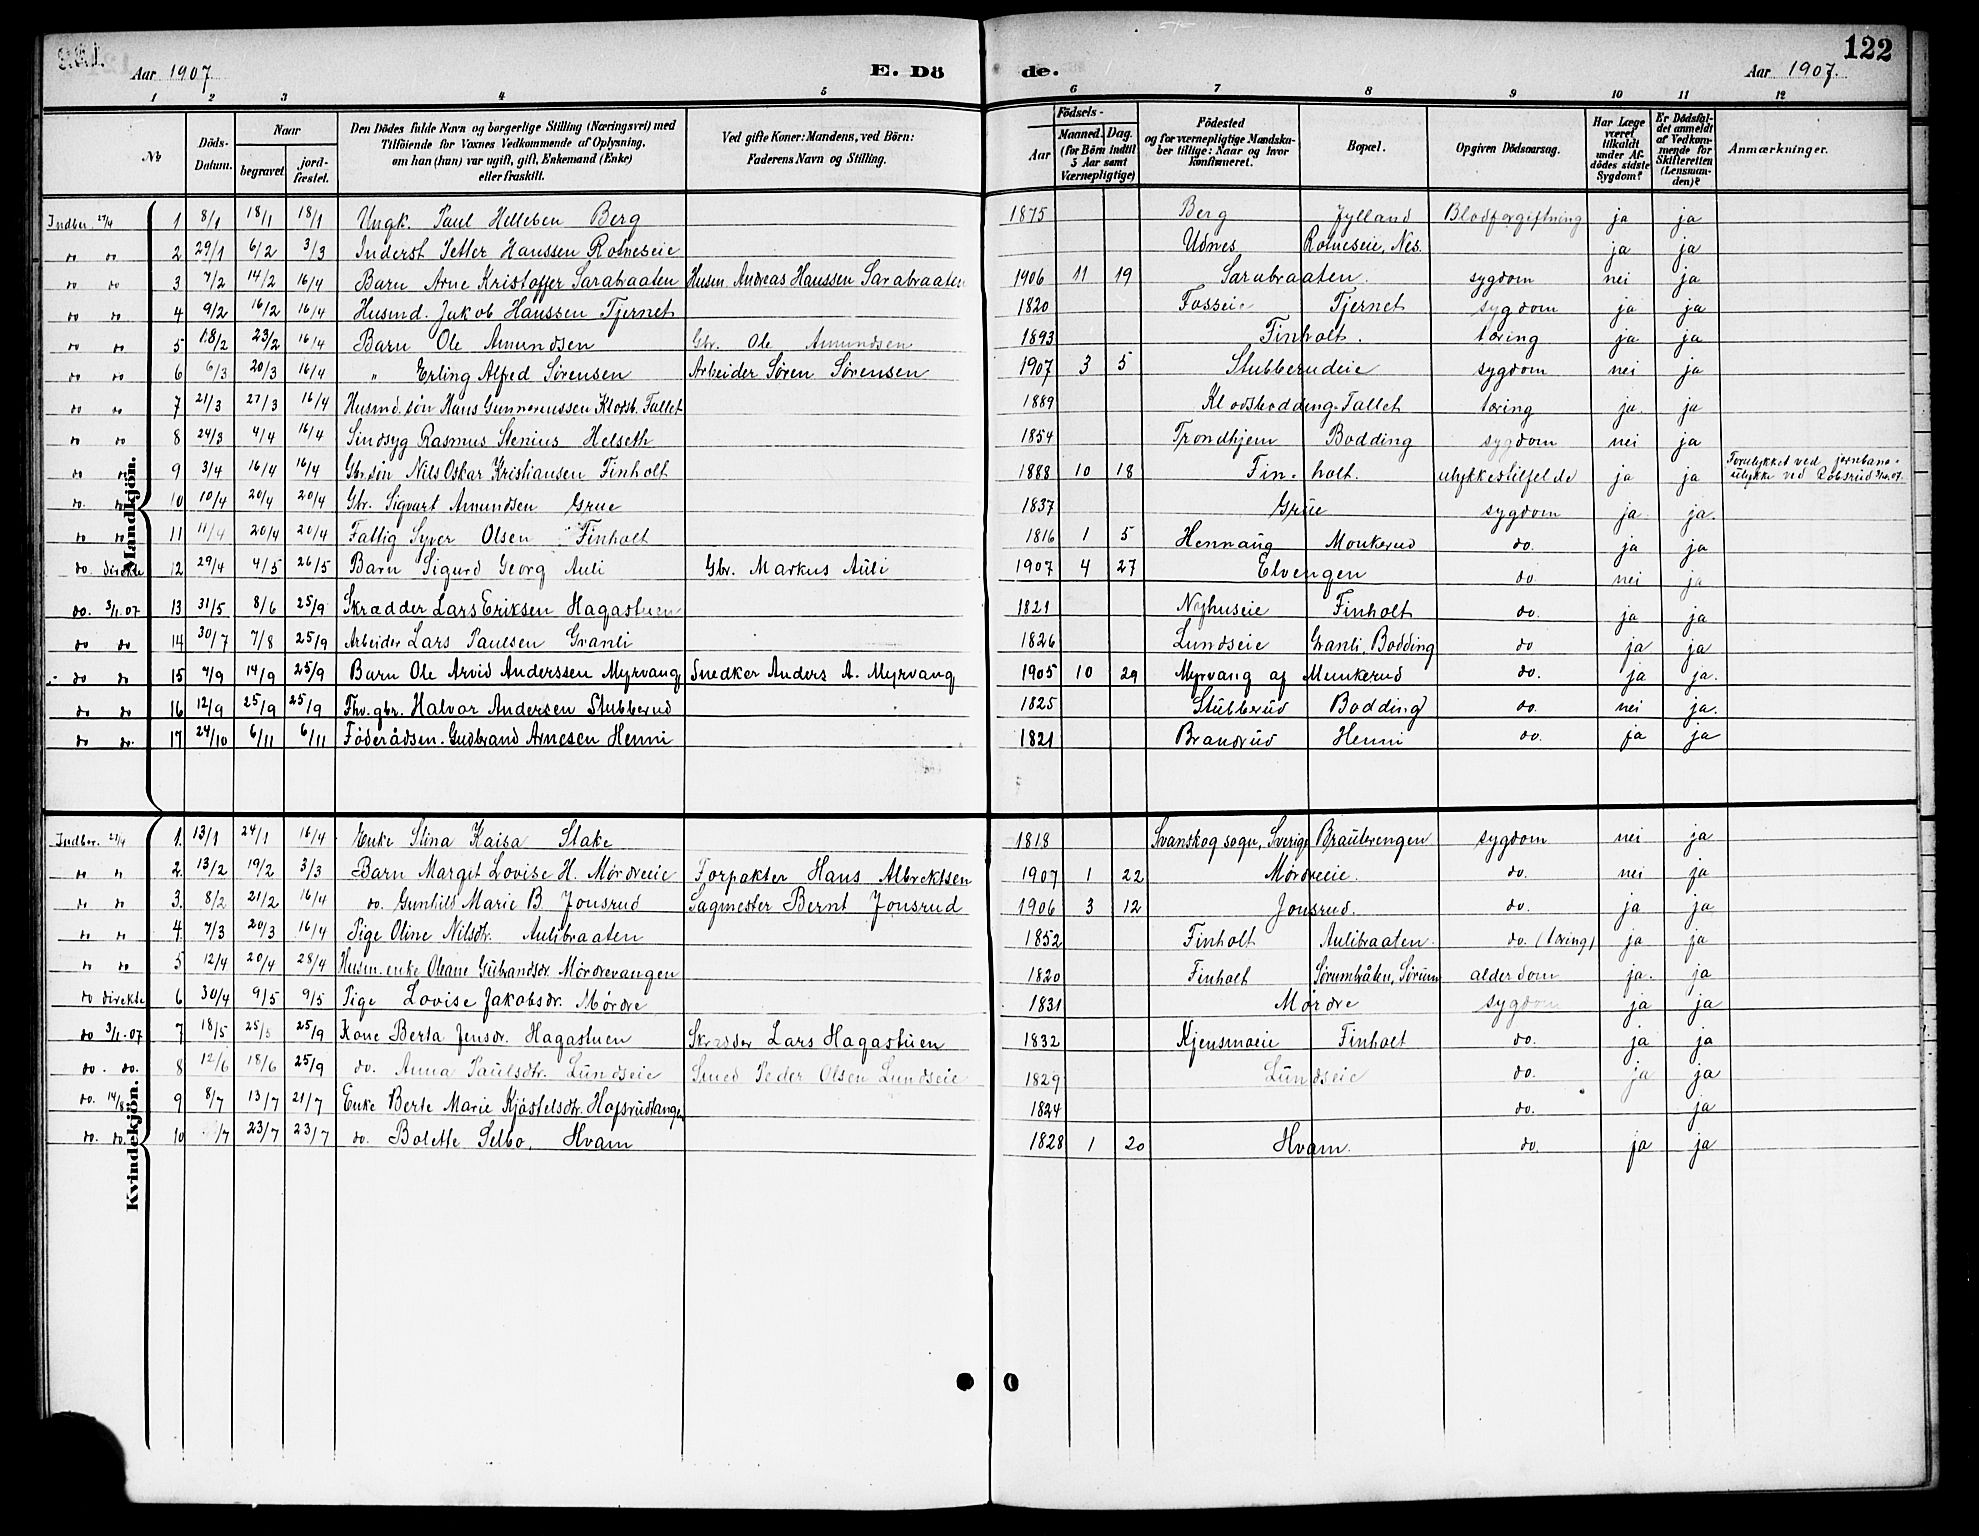 122
Aar 1907. E. Dö de. Aar 1907.
1 2 3 4 5 6 7 8 9 10 11 12
No Döds-Datum. Naar begravet jordfæstet. Den Dödes fulde Navn og borgerlige Stilling (Næringsvei) med Tilföiende for Voxnes Vedkommende af Oplysning, om han (hun) var ugift, gift, Enkemand (Enke) eller fraskilt. Ved gifte Koner: Mandens, ved Börn: Faderens Navn og Stilling. Födsels- Aar Maaned. Dag. (for Börn indtil 5 Aar samt Værnepligtige) Födested og for værnepligtige Mandskaber tillige: Naar og hvor konfirmeret. Bopæl. Opgiven Dödsaarsag. Har Læge været tilkaldt under Afdödes sidste Sygdom? Er Dödsfaldet anmeldt af Vedkommende for Skifteretten (Lensmanden)? Anmærkninger.
Mandkjön.
Indber. 27/4 1 8/1 18/1 18/1 Ungk. Paul Helleben Berg 1875 Berg Jylland Blodforgiftning ja ja
do do 2 29/1 6/2 3/3 Inderst Petter Hanssen Rotneseie Udnes Rotneseie, Nes. ja ja
do do 3 7/2 14/2 16/4 Barn Arne Kristoffer Sarabraaten Husm. Andreas Hanssen Sarabraaten 1906 11 19 Sarabraaten. sygdom nei ja
do do 4 9/2 16/2 16/4 Husmd. Jakob Hanssen Tjernet 1820 Fosseie Tjernet sygdom ja ja
do do 5 18/2 23/2 16/4 Barn Ole Amundsen Gbr. Ole Amundsen 1893 Finholt. tæring ja ja
do do 6 6/3 20/3 16/4 " Erling Alfred Sørensen Arbeider Søren Sørensen 1907 3 5 Stubberudeie sygdom nei ja
do do 7 21/3 27/3 16/4 Husmd. søn Hans Gunnerussen Klodsb. Fallet 1889 Klodsbodding-Fallet tæring ja ja
do do 8 24/3 4/4 16/4 Sindsyg Rasmus Stenius Helseth 1854 Trondhjem Bodding sygdom nei ja
do do 9 3/4 16/4 16/4 Gbr.søn Nils Oskar Kristiansen Finholt 1888 10 18 Finholt. ulykkestilfelde ja ja Forulykket ved jernbaneulykke ved
do. do 10 10/4 20/4 20/4 Gbr. Sigvart Amundsen Grue 1837 Grüe sygdom ja. ja.
do do 11 11/4 20/4 20/4 Fattig Syver Olsen Finholt 1816 1 5 Hennaug Monkerud do. ja ja
do. direkte 12 29/4 4/5 26/5 Barn Sigurd Georg Auli Gbr. Markus Auli 1907 4 27 Elvengen do. nei ja
do. 3/1.07 13 31/5 8/6 25/9 Skrædder Lars Eriksen Hagastuen 1821 Nyhuseie Finholt do. ja ja
do do 14 30/7 7/8 25/9 Arbeider Lars Paulsen Granli 1826 Lundseie Granli, Bodding do ja ja
do do 15 7/9 14/9 25/9 Barn Ole Arvid Anderssen Myrvang Snedker Anders A. Myrvang 1905 10 29 Myrvang af Munkerud do. ja ja.
do do 16 12/9 25/9 25/9 Fhv. gbr. Halvor Andersen Stubberud 1825 Stubberud Bodding do. nei ja.
do do. 17 24/10 6/11 6/11 Föderådsen. Gudbrand Arnesen Henni 1821 Brandrud Henni do. ja ja
Kvindekjön.
Indber. 27/4 1. 13/1 24/1 16/4 Enke Stina Kaisa Stake 1818 Svanskog sogn, Sverige Braubrengen sygdom nei ja
do do 2. 13/2 19/2 3/3 Barn Margit Lovise H. Mordreeie Forpakter Hans Albrektsen 1907 1 22 Mordreeie. do. nei ja
do do 3. 8/2 21/2 16/4 do. Gunhild Marie B. Jonsrud Sagmester Bernt Jonsrud 1906 3 12 Jonsrud. do. ja ja
do do 4. 7/3 20/3 16/4 Pige Oline Nilsdtr. Aulibraaten 1852 Finholt Aulibraaten. do. (tæring) ja ja
do do 5 12/4 20/4 28/4 Husm. enke Oleane Gulbrandsdr. Mördrevangen 1820 Finholt Sørumbråten, Sørum alderdom ja. ja
do direkte 6 30/4 9/5 9/5 Pige Lovise Jakobsdr. Mørdre 1831 Mördre sygdom ja ja
do 3/1.07 7 18/5 25/5 25/9 Kone Berta Jensdr. Hagastuen Skrædder Lars Hagastuen 1832 Kjensmoeie Finholt do. ja ja
do. do. 8 12/6 18/6 25/9 do. Anna Paulsdtr. Lundseie Smed Peder Olsen Lundseie 1829 Lundseie do. ja ja
do. 14/8 9 8/7 13/7 21/7 Enke Berte Marie Kjöstelsdtr. Hofsrudtangen 1824 do. ja
do. do. 10 /7 23/7 23/7 do. Bolette Selbo, Hvam 1828 1 20 Hvam. do. ja ja